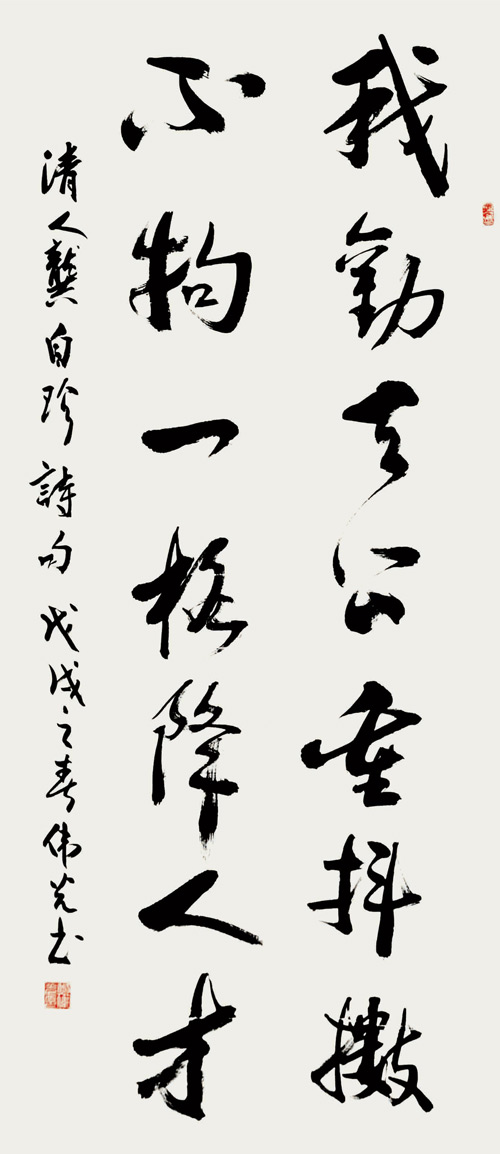 我勸天公重抖擻
不拘一格降人才
清人龔自珍詩句 戊戌之春伟光书